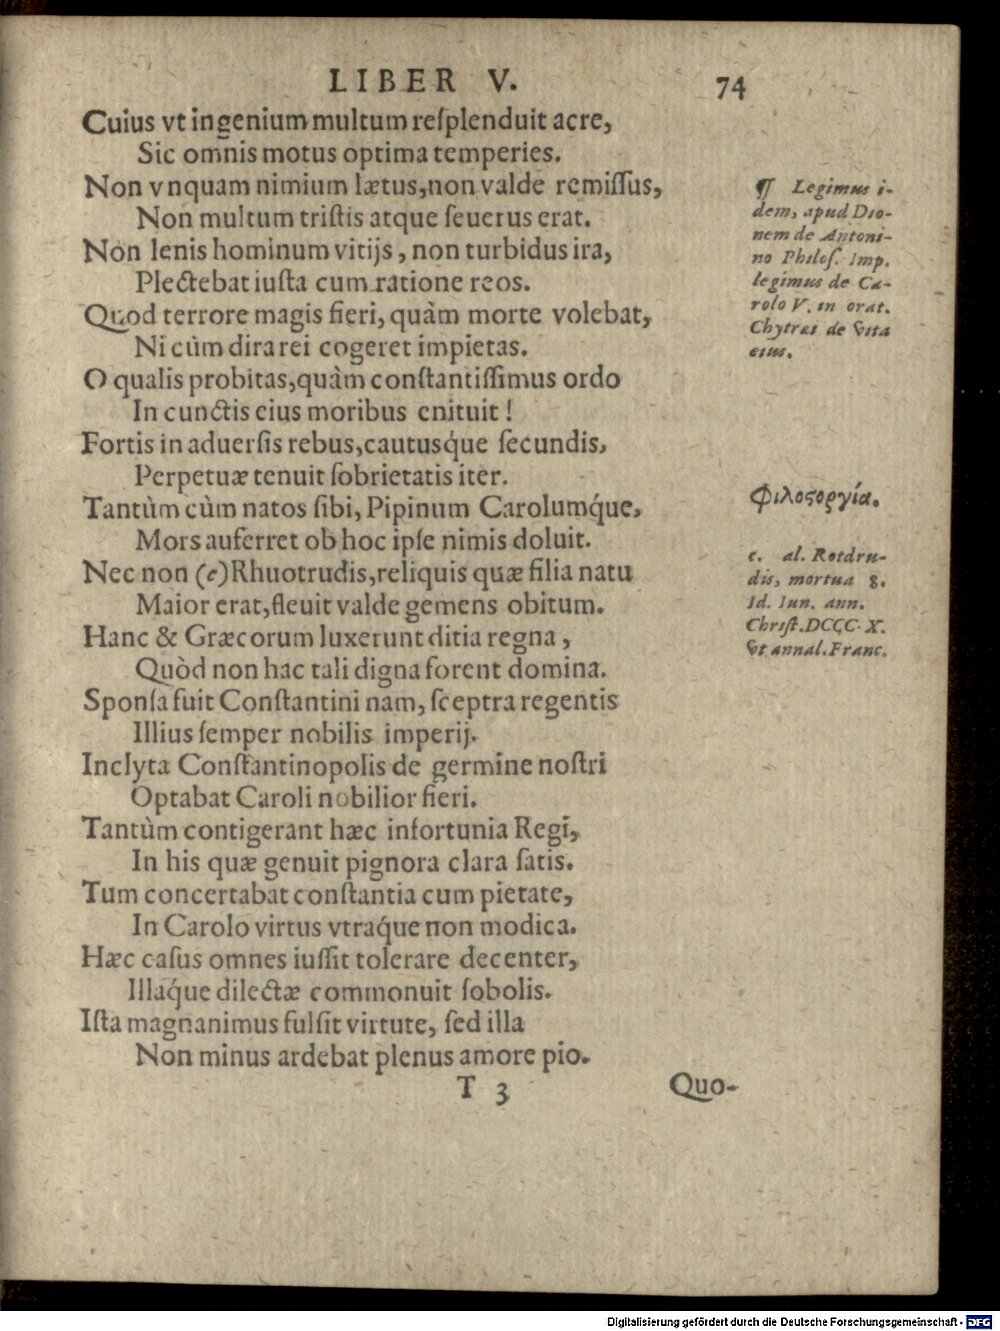 LIBER V. 74
Cuius vt ingenium multum reſplenduit acre,
Sic omnis motus optima temperies.
Non vnquam nimium lætus, non valde remiſſus,
Non multum triſtis atque ſeuerus erat.
Non lenis hominum vitijs, non turbidus ira,
Plectebat iuſta cum ratione reos.
Quod terrore magis fieri, quàm morte volebat,
Ni cùm dira rei cogeret impietas.
O qualis probitas, quàm conſtantiſſimus ordo
In cunctis eius moribus enituit!
Fortis in aduerſis rebus, cautusq́ue ſecundis,
Perpetuæ tenuit ſobrietatis iter.
Tantùm cùm natos ſibi, Pipinum Carolumq́ue,
Mors auferret ob hoc ipſe nimis doluit.
Nec non (e) Rhuotrudis, reliquis quæ filia natu
Maior erat, fleuit valde gemens obitum.
Hanc & Græcorum luxerunt ditia regna,
Quòd non hac tali digna forent domina.
Sponſa fuit Conſtantini nam, ſceptra regentis
Illius ſemper nobilis imperij.
Inclyta Conſtantinopolis de germine noſtri
Optabat Caroli nobilior fieri.
Tantùm contigerant hæc infortunia Regi,
In his quæ genuit pignora clara ſatis.
Tum concertabat conſtantia cum pietate,
In Carolo virtus vtraq́ue non modica.
Hæc caſus omnes iuſſit tolerare decenter,
Illaq́ue dilectæ commonuit ſobolis.
Iſta magnanimus fulſit virtute, ſed illa
Non minus ardebat plenus amore pio.
T 3 Quo-
¶ Legimus i-
dem, apud Dio-
nem de Antoni-
no Philoſ. Imp.
legimus de Ca-
rolo V. in orat.
Chytræi de vita
eius.
Φιλοςοργία.
e. al. Rotdru-
dis, mortua 8.
Id. Iun. ann.
Chriſt. DCCC X.
vt annal. Franc.
Digitalisierung gefördert durch die Deutsche Forschungsgemeinschaft - DFG